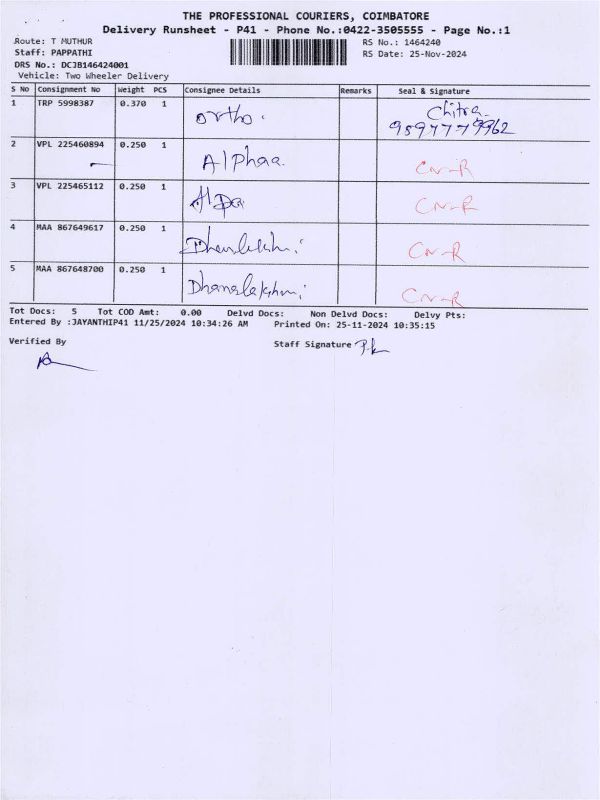 THE PROFESSIONAL COURIERS, COIMBATORE
Delivery Runsheet - P41 - Phone No.:0422-3505555 - Page No.:1
Route: T MUTHUR RS No.: 1464240
Staff: PAPPATHI RS Date: 25-Nov-2024
DRS No.: DCJB146424001
Vehicle: Two Wheeler Delivery
S No Consignment No Weight PCS Consignee Details Remarks Seal & Signature
1 TRP 5998387 0.370 1 Ortho. Chitra
2 VPL 225460894 0.250 1 Alphaa. CN-R
3 VPL 225465112 0.250 1 CN-R
4 MAA 867649617 0.250 1 CN-R
5 MAA 867648700 0.250 1 Dhanalakshmi CN-R
Tot Docs: 5 Tot COD Amt: 0.00 Delvd Docs: Non Delvd Docs: Delvy Pts:
Entered By :JAYANTHIP41 11/25/2024 10:34:26 AM Printed On: 25-11-2024 10:35:15
Verified By Staff Signature